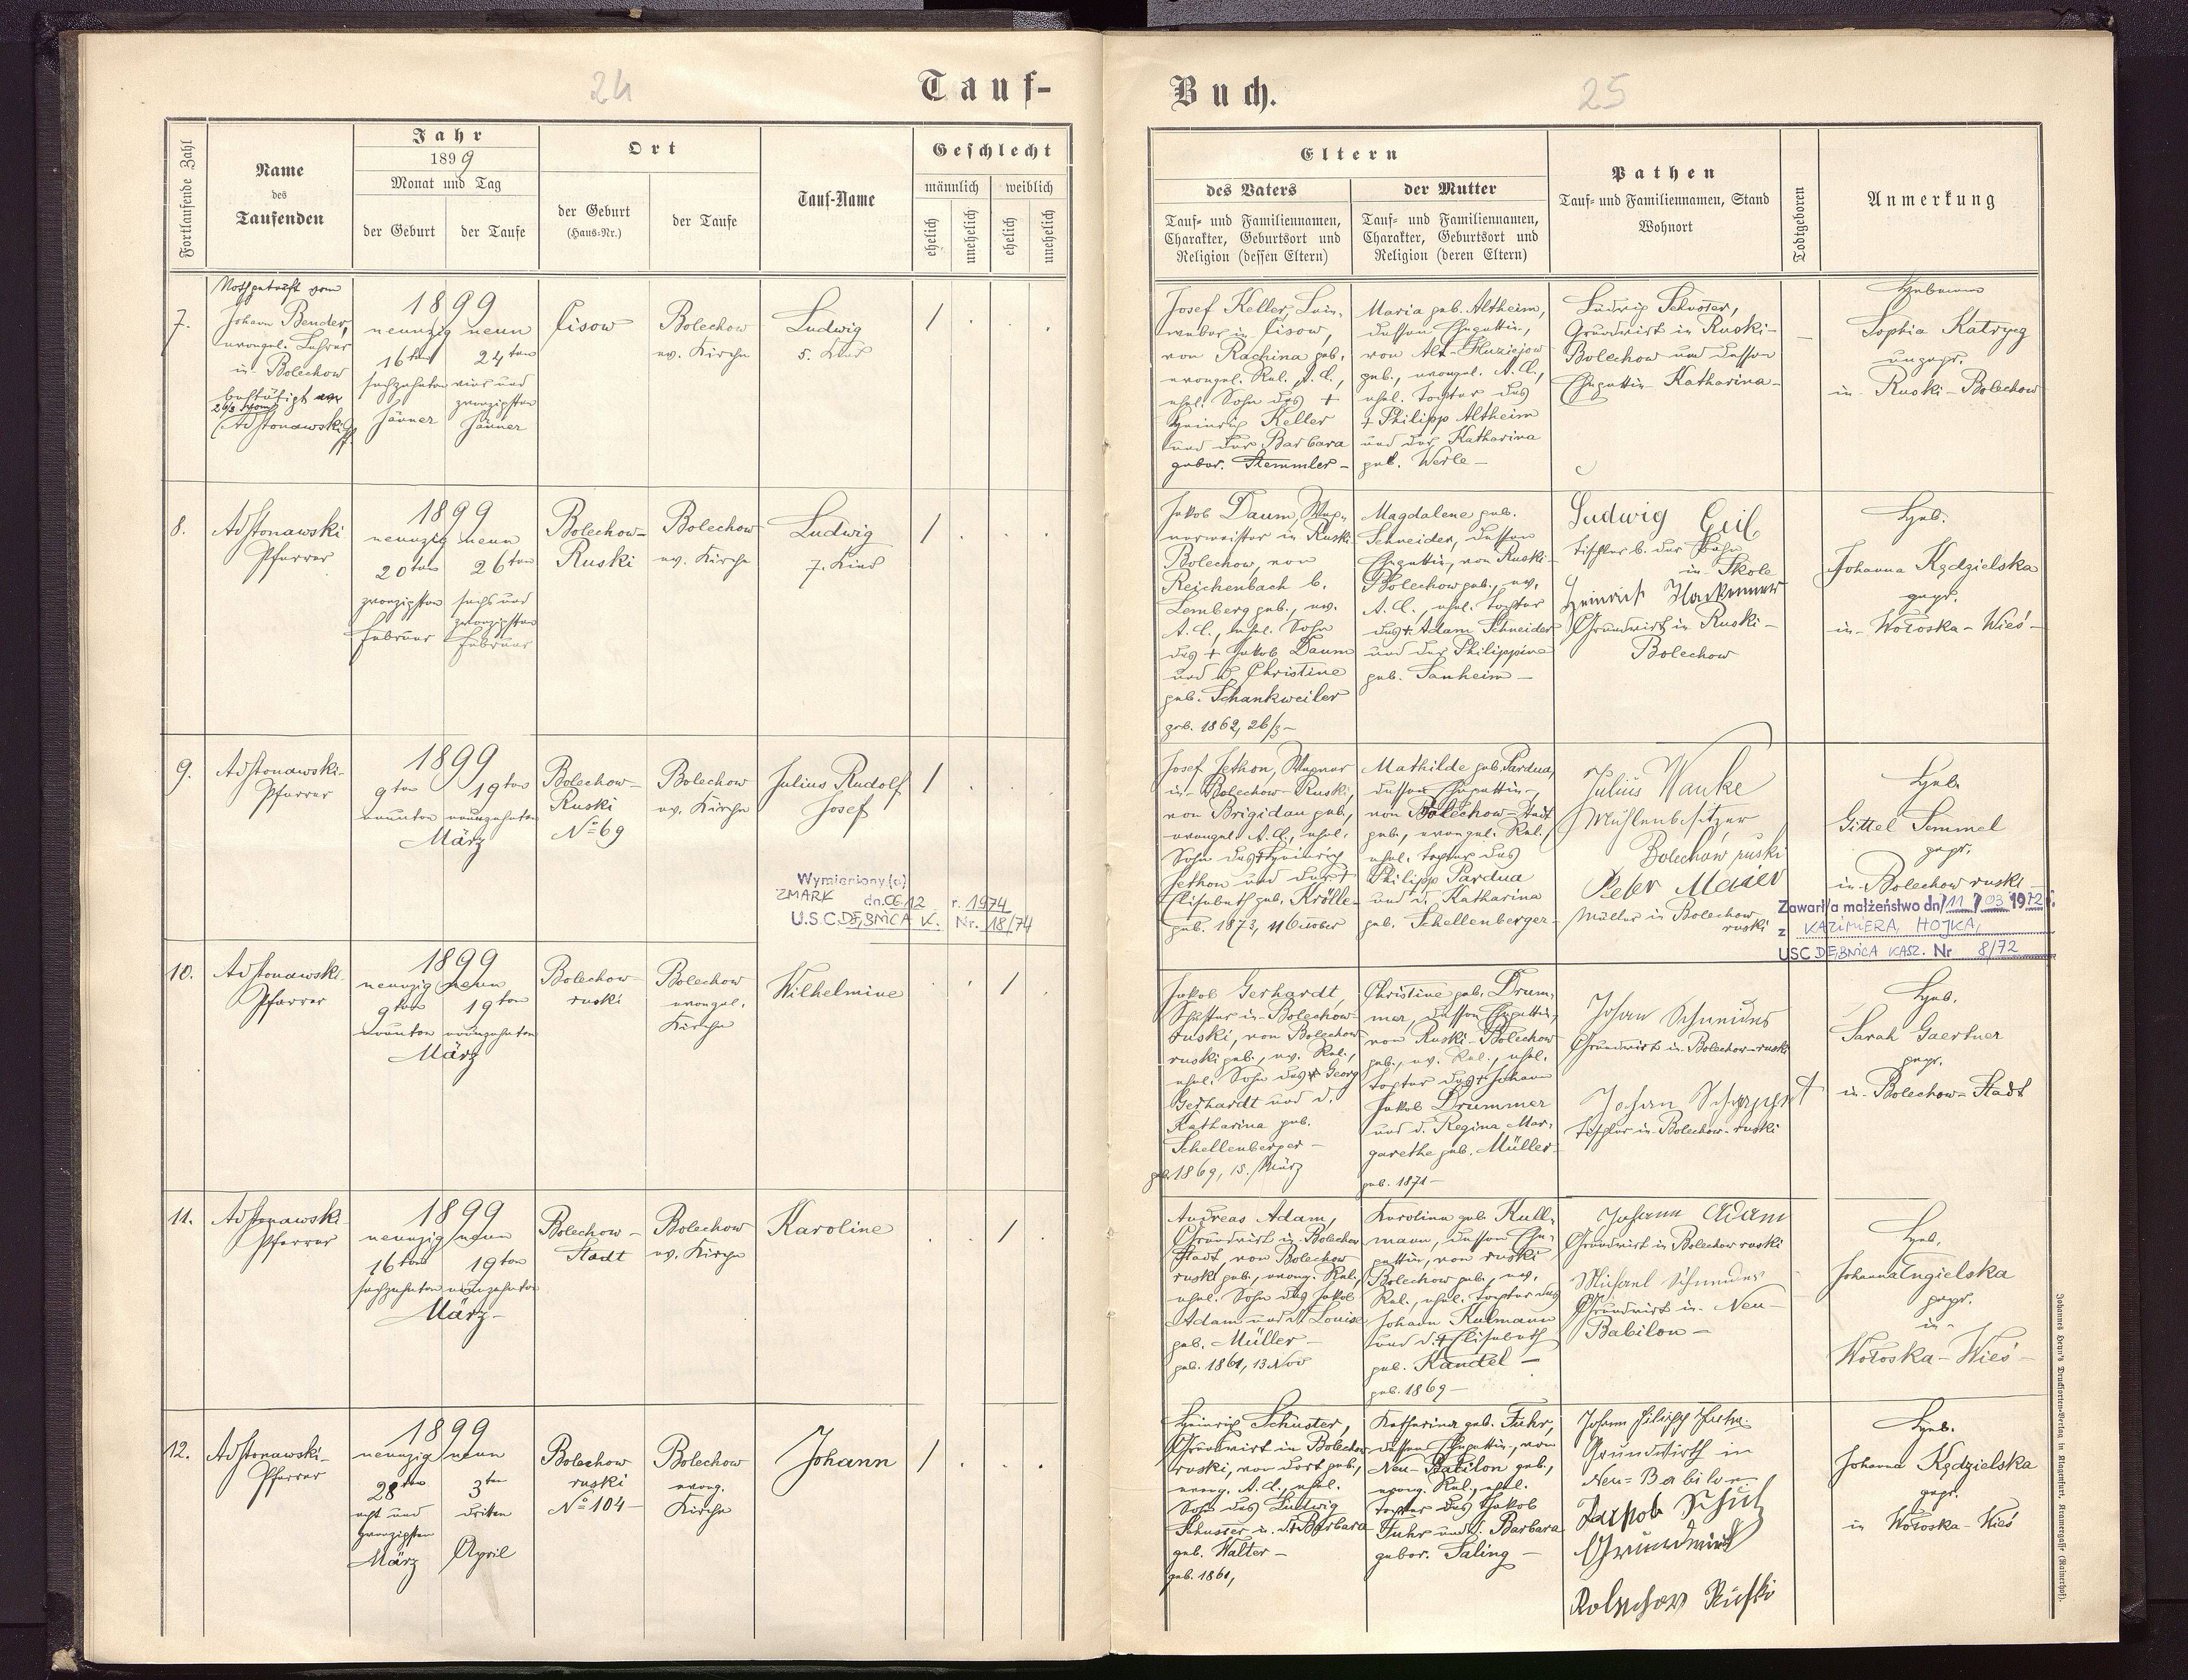 24
Tauf-
Fortlaufende Zahl
Name
des
Taufenden
Jahr
1899
Monat und Tag
der Geburt
der Taufe
Ort
der Geburt
(Haus-Nr.)
der Taufe
Tauf-Name
Geschlecht
männlich
weiblich
ehelich
unehelich
ehelich
unehelich
7.
Nothgetauft vom
Johann Bender,
evangel. Lehrer
in Bolechow
bestätigt
Adstonawski
1899
neunzig neun
16ten
24ten
sechzehnten
vier und
zwanzigsten
Jänner
Jänner
Lisow
Bolechow
ev. Kirche
Ludwig
5. Kind
1
8.
Adstonawski
Pfarrer
1899
neunzig neun
20ten
26ten
zwanzigsten
sechs und
zwanzigsten
Februar
Februar
Bolechow-
Ruski
Bolechow
ev. Kirche
Ludwig
7. Kind
1
9.
Adstonawski-
Pfarrer
1899
9ten
19ten
neunten
neunzehnten
März
Bolechow-
Ruski
No 69
Bolechow
ev. Kirche
Julius Rudolf
Josef
1
Wymieniony(a)
ZMARŁ dn. 06.12 r. 1974
U.S.C. DĘBNICA K. Nr. 18/74
10.
Adstonawski-
Pfarrer
1899
neunzig neun
9ten
19ten
neunten
neunzehnten
März
Bolechow-
ruski
Bolechow
evangel.
Kirche
Wilhelmine
1
11.
Adstonawski
Pfarrer
1899
neunzig neun
16ten
19ten
sechzehnten
neunzehnten
März-
Bolechow-
Stadt
Bolechow
ev. Kirche
Karoline
1
12.
Adstonawski-
Pfarrer
1899
neunzig neun
28ten
3ten
acht und
zwanzigsten
dritten
März
April
Bolechow
ruski
No 104-
Bolechow
evang.
Kirche
Johann
1
Buch.
25
Eltern
des Vaters
Tauf- und Familiennamen,
Charakter, Geburtsort und
Religion (dessen Eltern)
der Mutter
Tauf- und Familiennamen,
Charakter, Geburtsort und
Religion (deren Eltern)
Pathen
Tauf- und Familiennamen, Stand
Wohnort
Todtgeboren
Anmerkung
Josef Keller, Lein-
weber in Lisow,
von Rachina geb.
evangel. Rel. A. C.,
ehel. Sohn des +
Heinrich Keller
und der Barbara
gebor. Stemmler-
Maria geb. Altheim,
dessen Ehegattin,
von Alt-
geb., evangel. A. C.,
ehel. Tochter des
+ Philipp Altheim
und der Katharina
geb. Werle-
Ludwig Schuster,
Grundwirt in Ruski-
Bolechow und dessen
Ehegattin Katharina-
Hebamme
Sophia Katryeg
ungepr.
in Ruski-Bolechow
Jakob Daum,
in Ruski
Bolechow, von
Reichenbach b.
Lemberg geb., ev.
A. C., ehel. Sohn
des + Jakob Daum
und d. Christine
geb. Schankweiler
geb. 1862, 26/3-
Magdalene geb.
Schneider, dessen
Ehegattin, von Ruski-
Bolechow geb., ev.
A. C., ehel. Tochter
des + Adam Schneider
und der Philippine
geb. Sanheim-
Ludwig Geib
Tischler b. der Bahn
in Skole
Heinrich
Grundwirt in Ruski-
Bolechow
Heb.
Johanna Kędzielska
gepr.
in Wołoska-Wieś-
Josef Jethon, Wagner
in Bolechow-Ruski,
von Brigidau geb.,
evangel. A. C., ehel.
Sohn des + Heinrich
Jethon und der +
Elisabeth geb. Krölle-
geb. 1873, 11 October
Mathilde geb. Pardua,
dessen Ehegattin,
von Bolechow-Stadt
geb., evangel. Rel.,
ehel. Tochter des
Philipp Pardua
und d. Katharina
geb. Schellenberger-
Julius Wanke
Mühlenbesitzer
Bolechow ruski
Peter Maier
Müller in Bolechow
ruski
Heb.
Gittel Semmel
gepr.
in Bolechow ruski-
Zawarł/a małżeństwo dn. 11/03 1972 r.
z KAZIMIERA, HOJKA,
USC DĘBNICA KASZ. Nr 8/72
Jakob Gerhardt,
in Bolechow-
ruski, von Bolechow-
ruski geb., ev. Rel.,
ehel. Sohn des + Georg
Gerhardt und d.
Katharina geb.
Schellenberger-
geb. 1869, 15. März
Christine geb. Drum-
mer, dessen Ehegattin,
von Ruski-Bolechow
geb., ev. Rel., ehel.
Tochter des + Johann
Jakob Drummer
und d. Regina Mar-
garethe geb. Müller-
geb. 1871-
Johan Schneider
Grundwirt in Bolechow-ruski
Johan
Tischler in Bolechow-ruski
Heb.
Sarah Gaertner
gepr.
in Bolechow-Stadt
Andreas Adam,
Grundwirt in Bolechow
Stadt, von Bolechow
ruski geb., evang. Rel.,
ehel. Sohn des Jakob
Adam und d. Louise
geb. Müller-
geb. 1861, 13 Nov
Karolina geb. Kull-
mann, dessen Ehe-
gattin, von ruski
Bolechow geb., ev.
Rel., ehel. Tochter des
Johann Kulmann
und d. + Elisabeth
geb. Kandel-
geb. 1869-
Johann Adam
Grundwirt in Bolechow ruski
Michael Schneider
Grundwirt in Neu-
Babilon-
Heb.
Johanna Engielska
gepr.
in
Wołoska-Wieś-
Heinrich Schuster,
Grundwirt in Bolechow
ruski, von dort geb.,
evang. A. C., ehel.
Sohn des Ludwig
Schuster u. d. + Barbara
geb. Walter-
geb. 1861,
Katharina geb. Fuhr,
dessen Ehegattin, von
Neu-Babilon geb.,
evang. Rel., ehel.
Tochter des Jakob
Fuhr und d. Barbara
gebor. Saling-
Johann Filipp
Grundwirth in
Neu-Babilon
Jakob
Grundwirt
Bolechow Ruski
Heb.
Johanna Kędzielska
gepr.
in Wołoska-Wieś
Johannes Heyn's Drucksorten-Verlag in Klagenfurt, Kramergasse (Rainerhof).